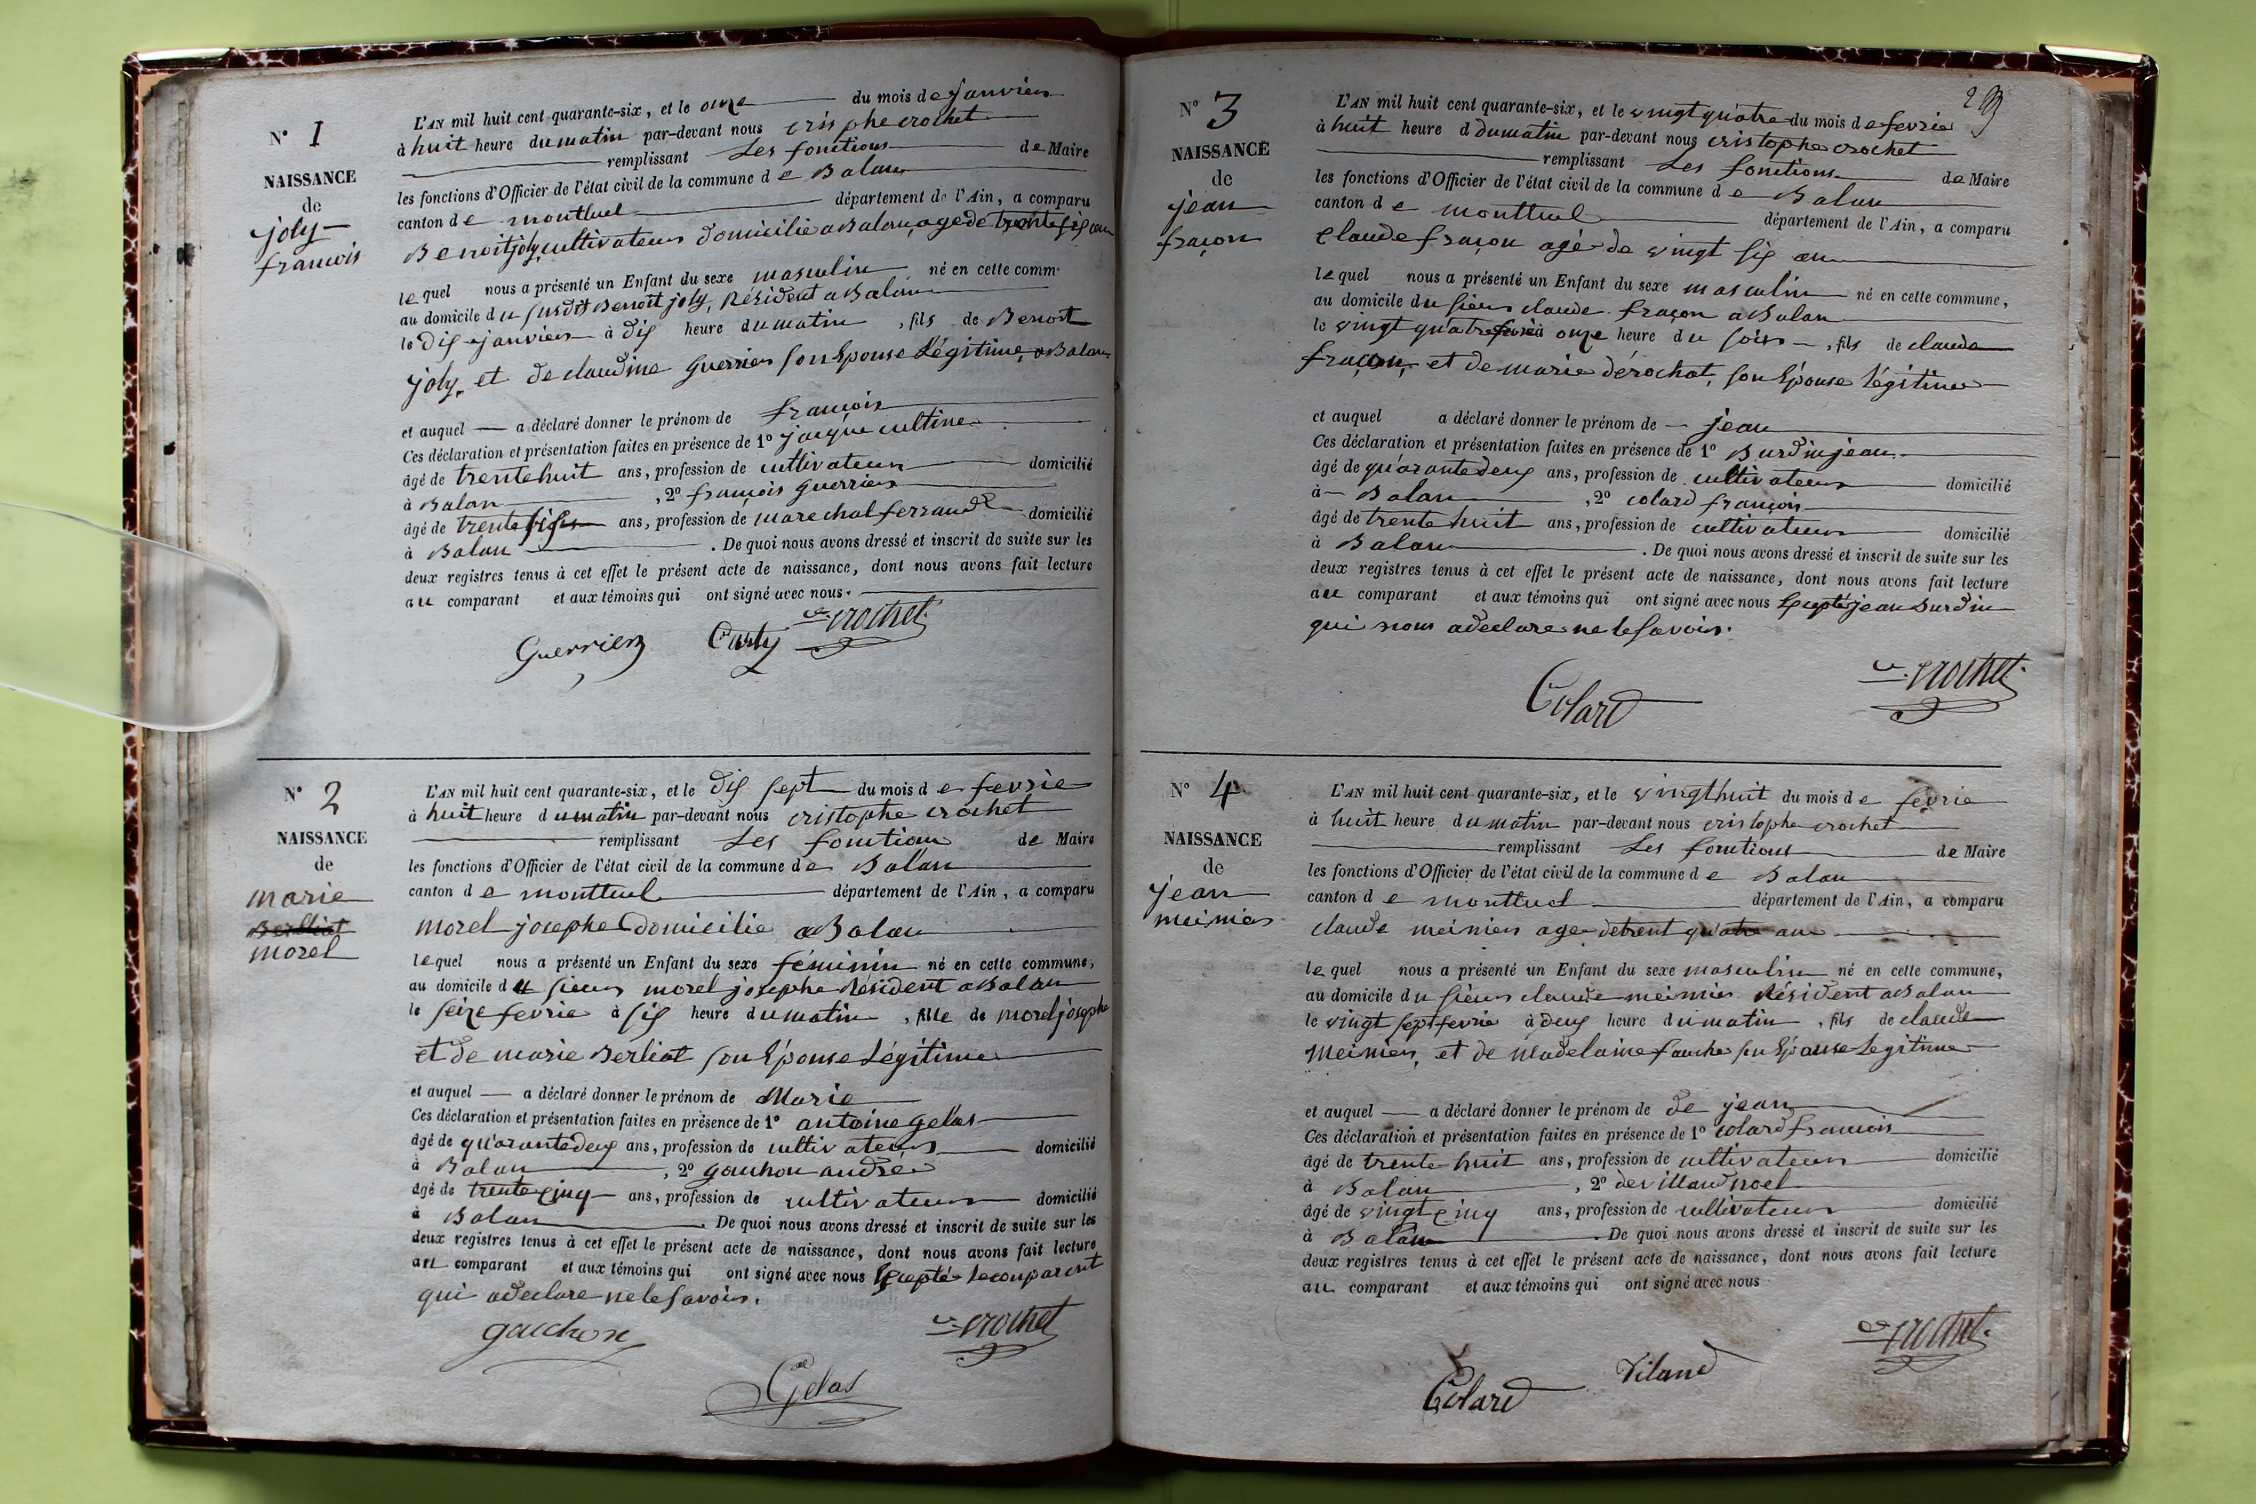 N° 1
NAISSANCE
de
joly
francois
L'AN mil huit cent quarante-six, et le onze du mois de janvier
à huit heure du matin par-devant nous crisphe crochet
remplissant Les fonctions de Maire
les fonctions d'Officier de l'état civil de la commune de Balan
canton de montluel département de l'Ain, a comparu
Benoit joly, cultivateur domicilié a Balan, agé de trente six an
lequel nous a présenté un Enfant du sexe masculin né en cette comm.
au domicile du susdit Benoit joly, Résident a Balan
le Dix janvier à dix heure du matin, fils de Benoit
joly, et de claudine guerrier son Epouse Légitime, a Balan
et auquel a déclaré donner le prénom de françois
Ces déclaration et présentation faites en présence de 1° jacque cultine
âgé de trente huit ans, profession de cultivateur domicilié
à Balan, 2° françois guerrier
âgé de trente six ans, profession de marechal ferrand domicilié
à Balan. De quoi nous avons dressé et inscrit de suite sur les
deux registres tenus à cet effet le présent acte de naissance, dont nous avons fait lecture
au comparant et aux témoins qui ont signé avec nous.
Guerrier crochet
N° 2
NAISSANCE
de
marie
Berliat
morel
L'AN mil huit cent quarante-six, et le dix sept du mois de fevrie
à huit heure du matin par-devant nous cristophe crochet
remplissant Les fonction de Maire
les fonctions d'Officier de l'état civil de la commune de Balan
canton de montluel département de l'Ain, a comparu
morel josephe Domicilie a Balan
lequel nous a présenté un Enfant du sexe féminin né en cette commune,
au domicile du sieur morel josephe Résident a Balan
le seize fevrie à six heure du matin, fille de morel josephe
et de marie Berliat son Epouse Légitime
et auquel a déclaré donner le prénom de Marie
Ces déclaration et présentation faites en présence de 1° antoine gelas
âgé de quarante deux ans, profession de cultivateur domicilié
à Balan, 2° gauchon andré
âgé de trente cinq ans, profession de cultivateur domicilié
à Balan. De quoi nous avons dressé et inscrit de suite sur les
deux registres tenus à cet effet le présent acte de naissance, dont nous avons fait lecture
au comparant et aux témoins qui ont signé avec nous Excepté Le comparent
qui a declare ne le savoir.
gauchon crochet
Gelas
N° 3
NAISSANCE
de
jean
fraçon
L'AN mil huit cent quarante-six, et le vingt quatre du mois de fevrie
à huit heure d du matin par-devant nous cristophe crochet
remplissant Les fonctions de Maire
les fonctions d'Officier de l'état civil de la commune de Balan
canton de montluel département de l'Ain, a comparu
claude fraçon agé de vingt six an
lequel nous a présenté un Enfant du sexe masculin né en cette commune,
au domicile du sieur claude fraçon a Balan
le vingt quatre à onze heure du soir, fils de claude
fraçon, et de marie dérochat, son Epouse Légitime
et auquel a déclaré donner le prénom de jean
Ces déclaration et présentation faites en présence de 1° Burdin jean
âgé de quarante deux ans, profession de cultivateur domicilié
à Balan, 2° colard françois
âgé de trente huit ans, profession de cultivateur domicilié
à Balan. De quoi nous avons dressé et inscrit de suite sur les
deux registres tenus à cet effet le présent acte de naissance, dont nous avons fait lecture
au comparant et aux témoins qui ont signé avec nous Excepté jean Burdin
qui nous a declare ne le savoir.
Colard crochet
N° 4
NAISSANCE
de
jean
meinier
L'AN mil huit cent quarante-six, et le vingt huit du mois de fevrie
à huit heure du matin par-devant nous cristophe crochet
remplissant Les fonctions de Maire
les fonctions d'Officier de l'état civil de la commune de Balan
canton de montluel département de l'Ain, a comparu
claude meinier age de trent quatre an
lequel nous a présenté un Enfant du sexe masculin né en cette commune,
au domicile du sieur claude meinier Résident a Balan
le vingt sept fevrie à deux heure du matin, fils de claude
Meinier, et de Madelaine fauche son Epouse Legitime
et auquel a déclaré donner le prénom de de jean
Ces déclaration et présentation faites en présence de 1° colard francois
âgé de trente huit ans, profession de cultivateur domicilié
à Balan, 2° devillaud noel
âgé de vingt cinq ans, profession de cultivateur domicilié
à Balan. De quoi nous avons dressé et inscrit de suite sur les
deux registres tenus à cet effet le présent acte de naissance, dont nous avons fait lecture
au comparant et aux témoins qui ont signé avec nous
crochet
Colard Vilaud